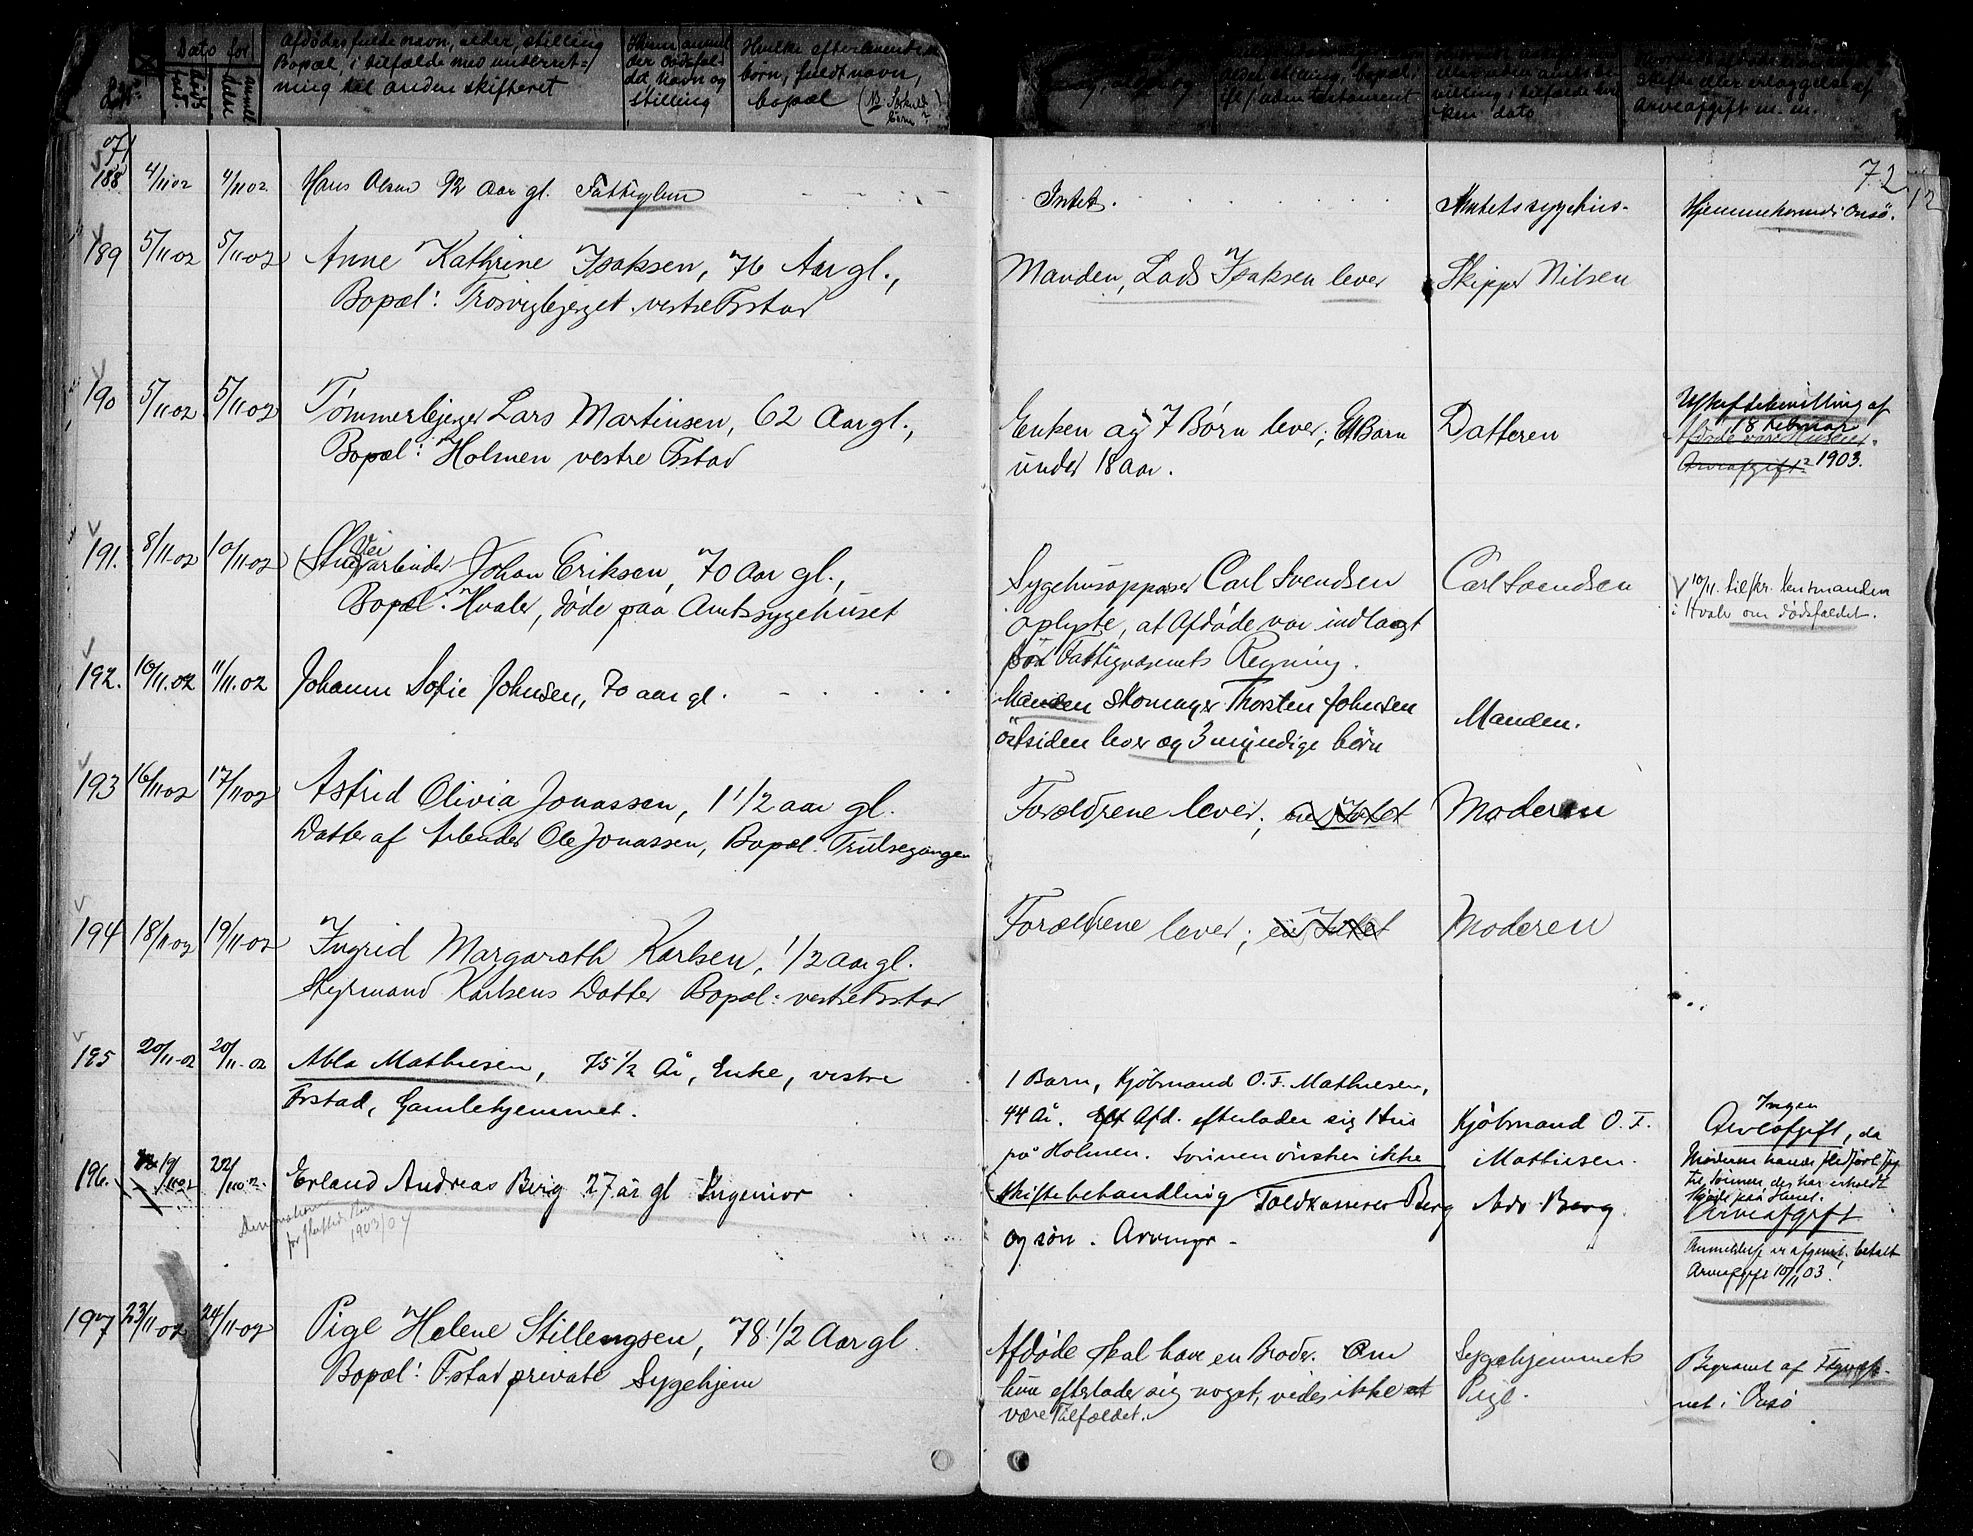 Dato for
Afdødes fulde navn, alder, stilling
Bopæl, i tilfælde med underret-
ning til anden skifteret
anmel
der dødsfal-
det Navn og
Stilling
Hvilke efterlevende
børn, fuldt navn,
bopæl
skifte eller erlæggelse af
Arveafgift m. m.
71
72
188 4/11 02 4/11 02 Hans Olsen 92 Aar gl. Fattiglem
Intet. Amtets sygehus. Hjemmehørende i Onsö.
189 5/11-02 5/11-02 Anne Kathrine Isaksen, 76 Aar gl.,
Bopæl: Trosvigbjerget vestre Fstad
Manden, Lads Isaksen lever Skipper Nilsen
190 5/11-02 5/11-02 Tømmerbjerger Lars Martinsen, 62 Aar gl.,
Bopæl: Holmen vestre Fstad
Enken og 7 Børn lever; Et Barn
under 18 aar.
Datteren
Uskiftebevilling af
18 Februar
1903.
Arveafgift?
191. 8/11-02 10/11-02 Veiarbeider Johan Eriksen, 70 Aar gl.,
Bopæl: Hvaler, døde paa Amtssygehuset
Sygehusopasser Carl Svendsen
oplyste, at Afdøde var indlagt
for Fattigvæsenets Regning.
Carl Svendsen
10/11. tilskr. Lensmanden
i Hvaler om dødsfaldet.
192. 10/11.02 11/11.02 Johanne Sofie Johnsen, 70 aar gl.
Manden Skomager Thorsten Johnsen
östsiden lever og 3 myndige børn
Manden.
193 16/11 02 17/11-02 Astrid Olivia Jonassen, 1 1/2 aar gl.
Datter af Arbeider Ole Jonassen, Bopæl: Trulsegangen
Forældrene lever; Moderen
194 18/11 02 19/11-02 Ingrid Margareth Karlsen, 1/2 aar gl.
Styrmand Karlsens Datter Bopæl: vestre Fstad
Forældrene lever; Moderen
195 20/11-02 20/11-02 Abla Mathiesen, 75 1/2 År, Enke, vestre
Fstad, Gamlehjemmet.
1 Barn, Kjöbmand O. F. Mathiesen,
44 År. Afd. efterlader sig Hus
på Holmen. Sønnen ønsker ikke
skiftebehandling
Kjöbmand O. F.
Mathiesen.
Ingen
Arveafgift, da
Moderen
til Sønnen, der har erholdt
Skjøde paa Huset.
196. 19/11 02 22/11 02 Erland Andreas Berg 27 år gl Ingeniør
1903/04
Toldkasserer Berg
og søn. Arvinger.
Adv Berg.
Arveafgift
Anmeldelse er afgivet, betalt
Arveafgift 10/11 03.
197 23/11-02 24/11-02 Pige Helene Stillengsen, 78 1/2 Aar gl.
Bopæl: Fstad private Sygehjem
Afdøde skal have en Broder. Om
hun efterlader sig noget, vides ikke at
være Tilfældet.
Sygehjemmets
Pige.
Begravet af Fgvæse-
net i Onsø